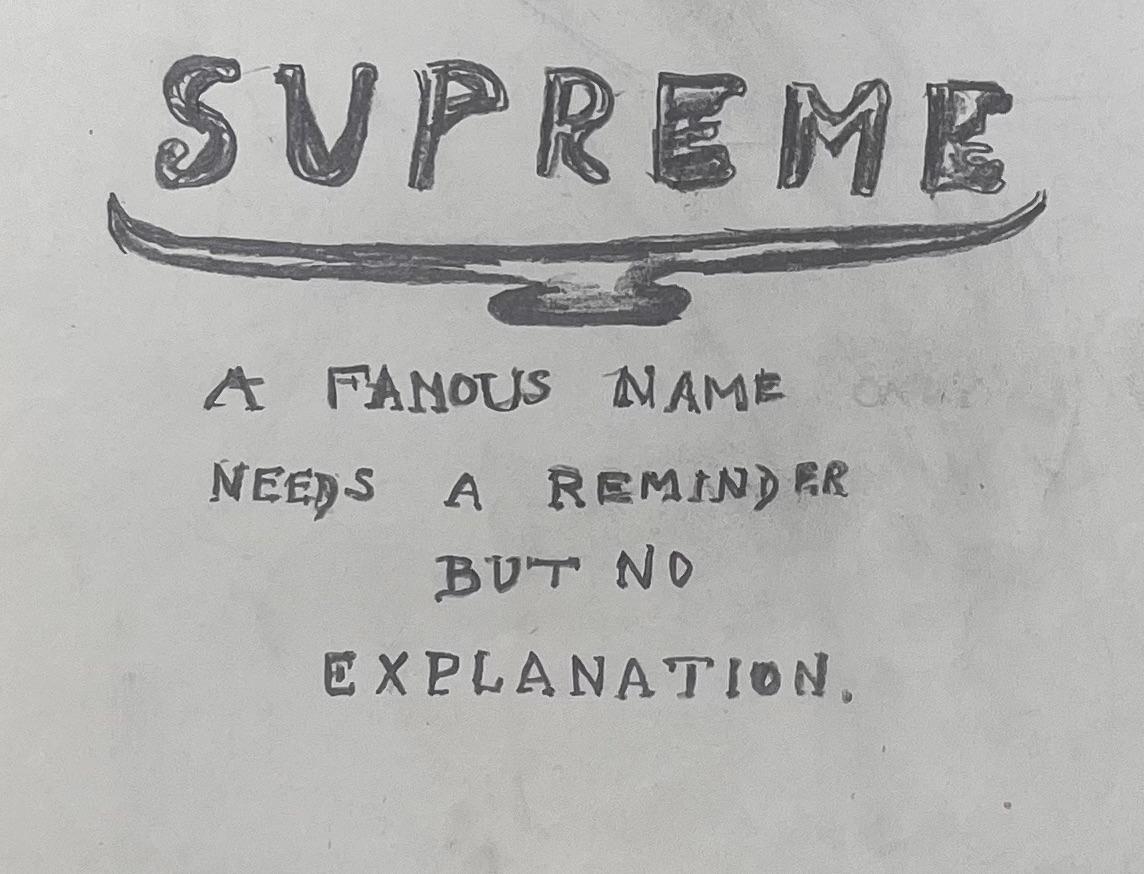 SUPREME
A FANOUS NAME
NEEDS A REMINDER
BUT NO
EXPLANATION.